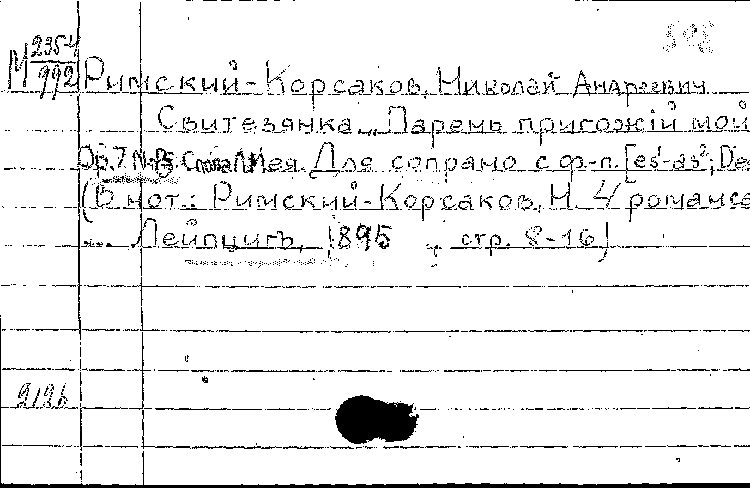 595
М 2354
992 Римский-Корсаков, Николай Андреевич
Свитезянка. „Парень пригожій мой
Ор. 7 № 3. Слова Л. Мея. Для сопрано с ф-п. [es¹-as²; Des
(В нот.: Римский-Корсаков, Н. 4 романса
... Лейпцигъ, 1895, стр. 8-16)
2126